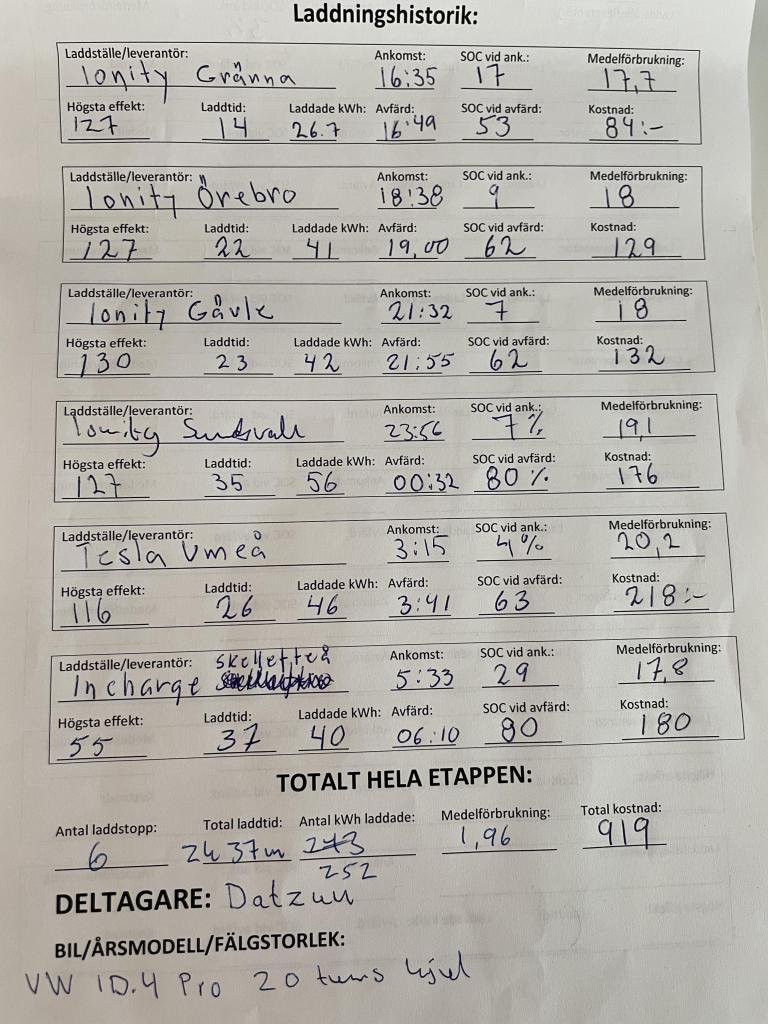 Laddningshistorik:
Laddställe/leverantör: Ankomst: SOC vid ank.: Medelförbrukning:
Ionity Gränna 16:35 17 17,7
Högsta effekt: Laddtid: Laddade kWh: Avfärd: SOC vid avfärd: Kostnad:
127 14 26.7 16:49 53 84:-
Laddställe/leverantör: Ankomst: SOC vid ank.: Medelförbrukning:
Ionity Örebro 18:38 9 18
Högsta effekt: Laddtid: Laddade kWh: Avfärd: SOC vid avfärd: Kostnad:
127 22 41 19,00 62 129
Laddställe/leverantör: Ankomst: SOC vid ank.: Medelförbrukning:
Ionity Gävle 21:32 7 18
Högsta effekt: Laddtid: Laddade kWh: Avfärd: SOC vid avfärd: Kostnad:
130 23 42 21:55 62 132
Laddställe/leverantör: Ankomst: SOC vid ank.: Medelförbrukning:
Ionity Sundsvall 23:56 7% 19,1
Högsta effekt: Laddtid: Laddade kWh: Avfärd: SOC vid avfärd: Kostnad:
127 35 56 00:32 80% 176
Laddställe/leverantör: Ankomst: SOC vid ank.: Medelförbrukning:
Tesla Umeå 3:15 4% 20,2
Högsta effekt: Laddtid: Laddade kWh: Avfärd: SOC vid avfärd: Kostnad:
116 26 46 3:41 63 218:-
Laddställe/leverantör: Ankomst: SOC vid ank.: Medelförbrukning:
Incharge skellefteå 5:33 29 17,8
Högsta effekt: Laddtid: Laddade kWh: Avfärd: SOC vid avfärd: Kostnad:
55 37 40 06:10 80 180
TOTALT HELA ETAPPEN:
Antal laddstopp: Total laddtid: Antal kWh laddade: Medelförbrukning: Total kostnad:
6 2h 37m 273 1,96 919
252
DELTAGARE: Datzun
BIL/ÅRSMODELL/FÄLGSTORLEK:
VW ID.4 Pro 20 tums hjul